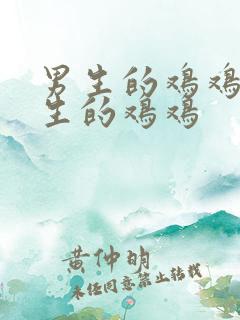 男生的鸡鸡
生的鸡鸡
黄仲明
未经同意禁止转载